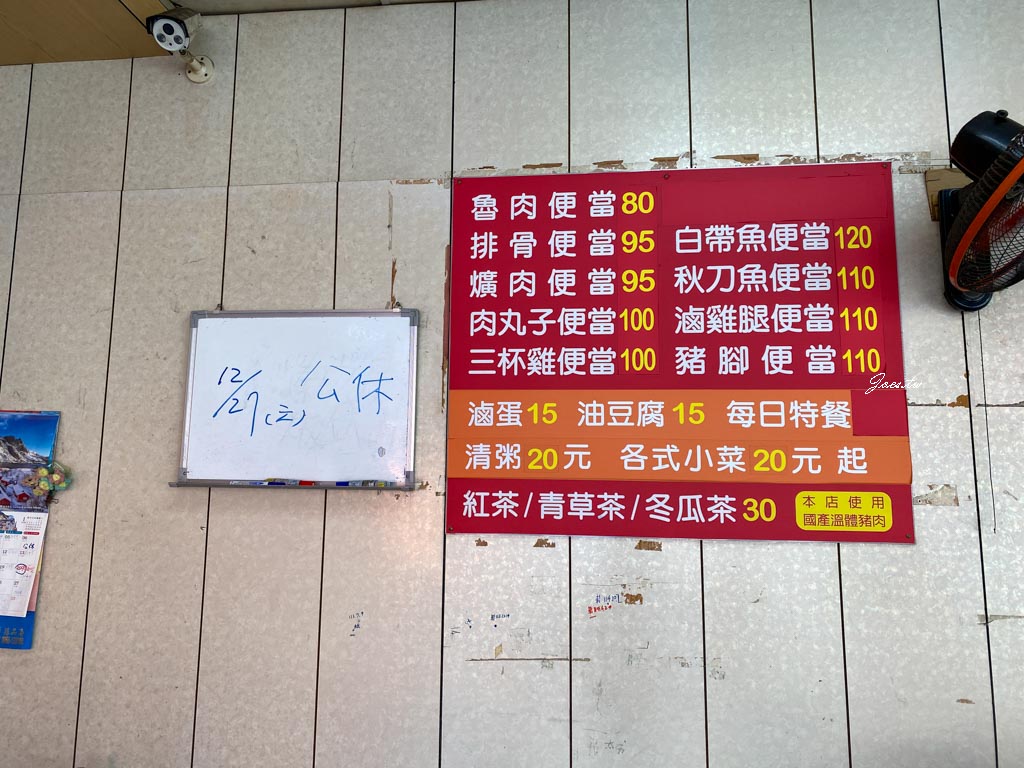 12/27(三) 公休
魯肉便當80
排骨便當95
爌肉便當95
肉丸子便當100
三杯雞便當100
白帶魚便當120
秋刀魚便當110
滷雞腿便當110
豬腳便當110
滷蛋15 油豆腐15 每日特餐
清粥20元 各式小菜20元起
紅茶/青草茶/冬瓜茶30
本店使用
國產溫體豬肉